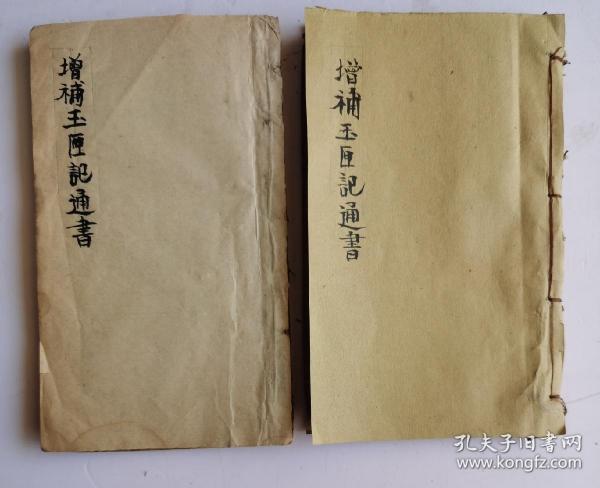 增補玉匣記通書
增補玉匣記通書
孔夫子旧书网
www.kongfz.com